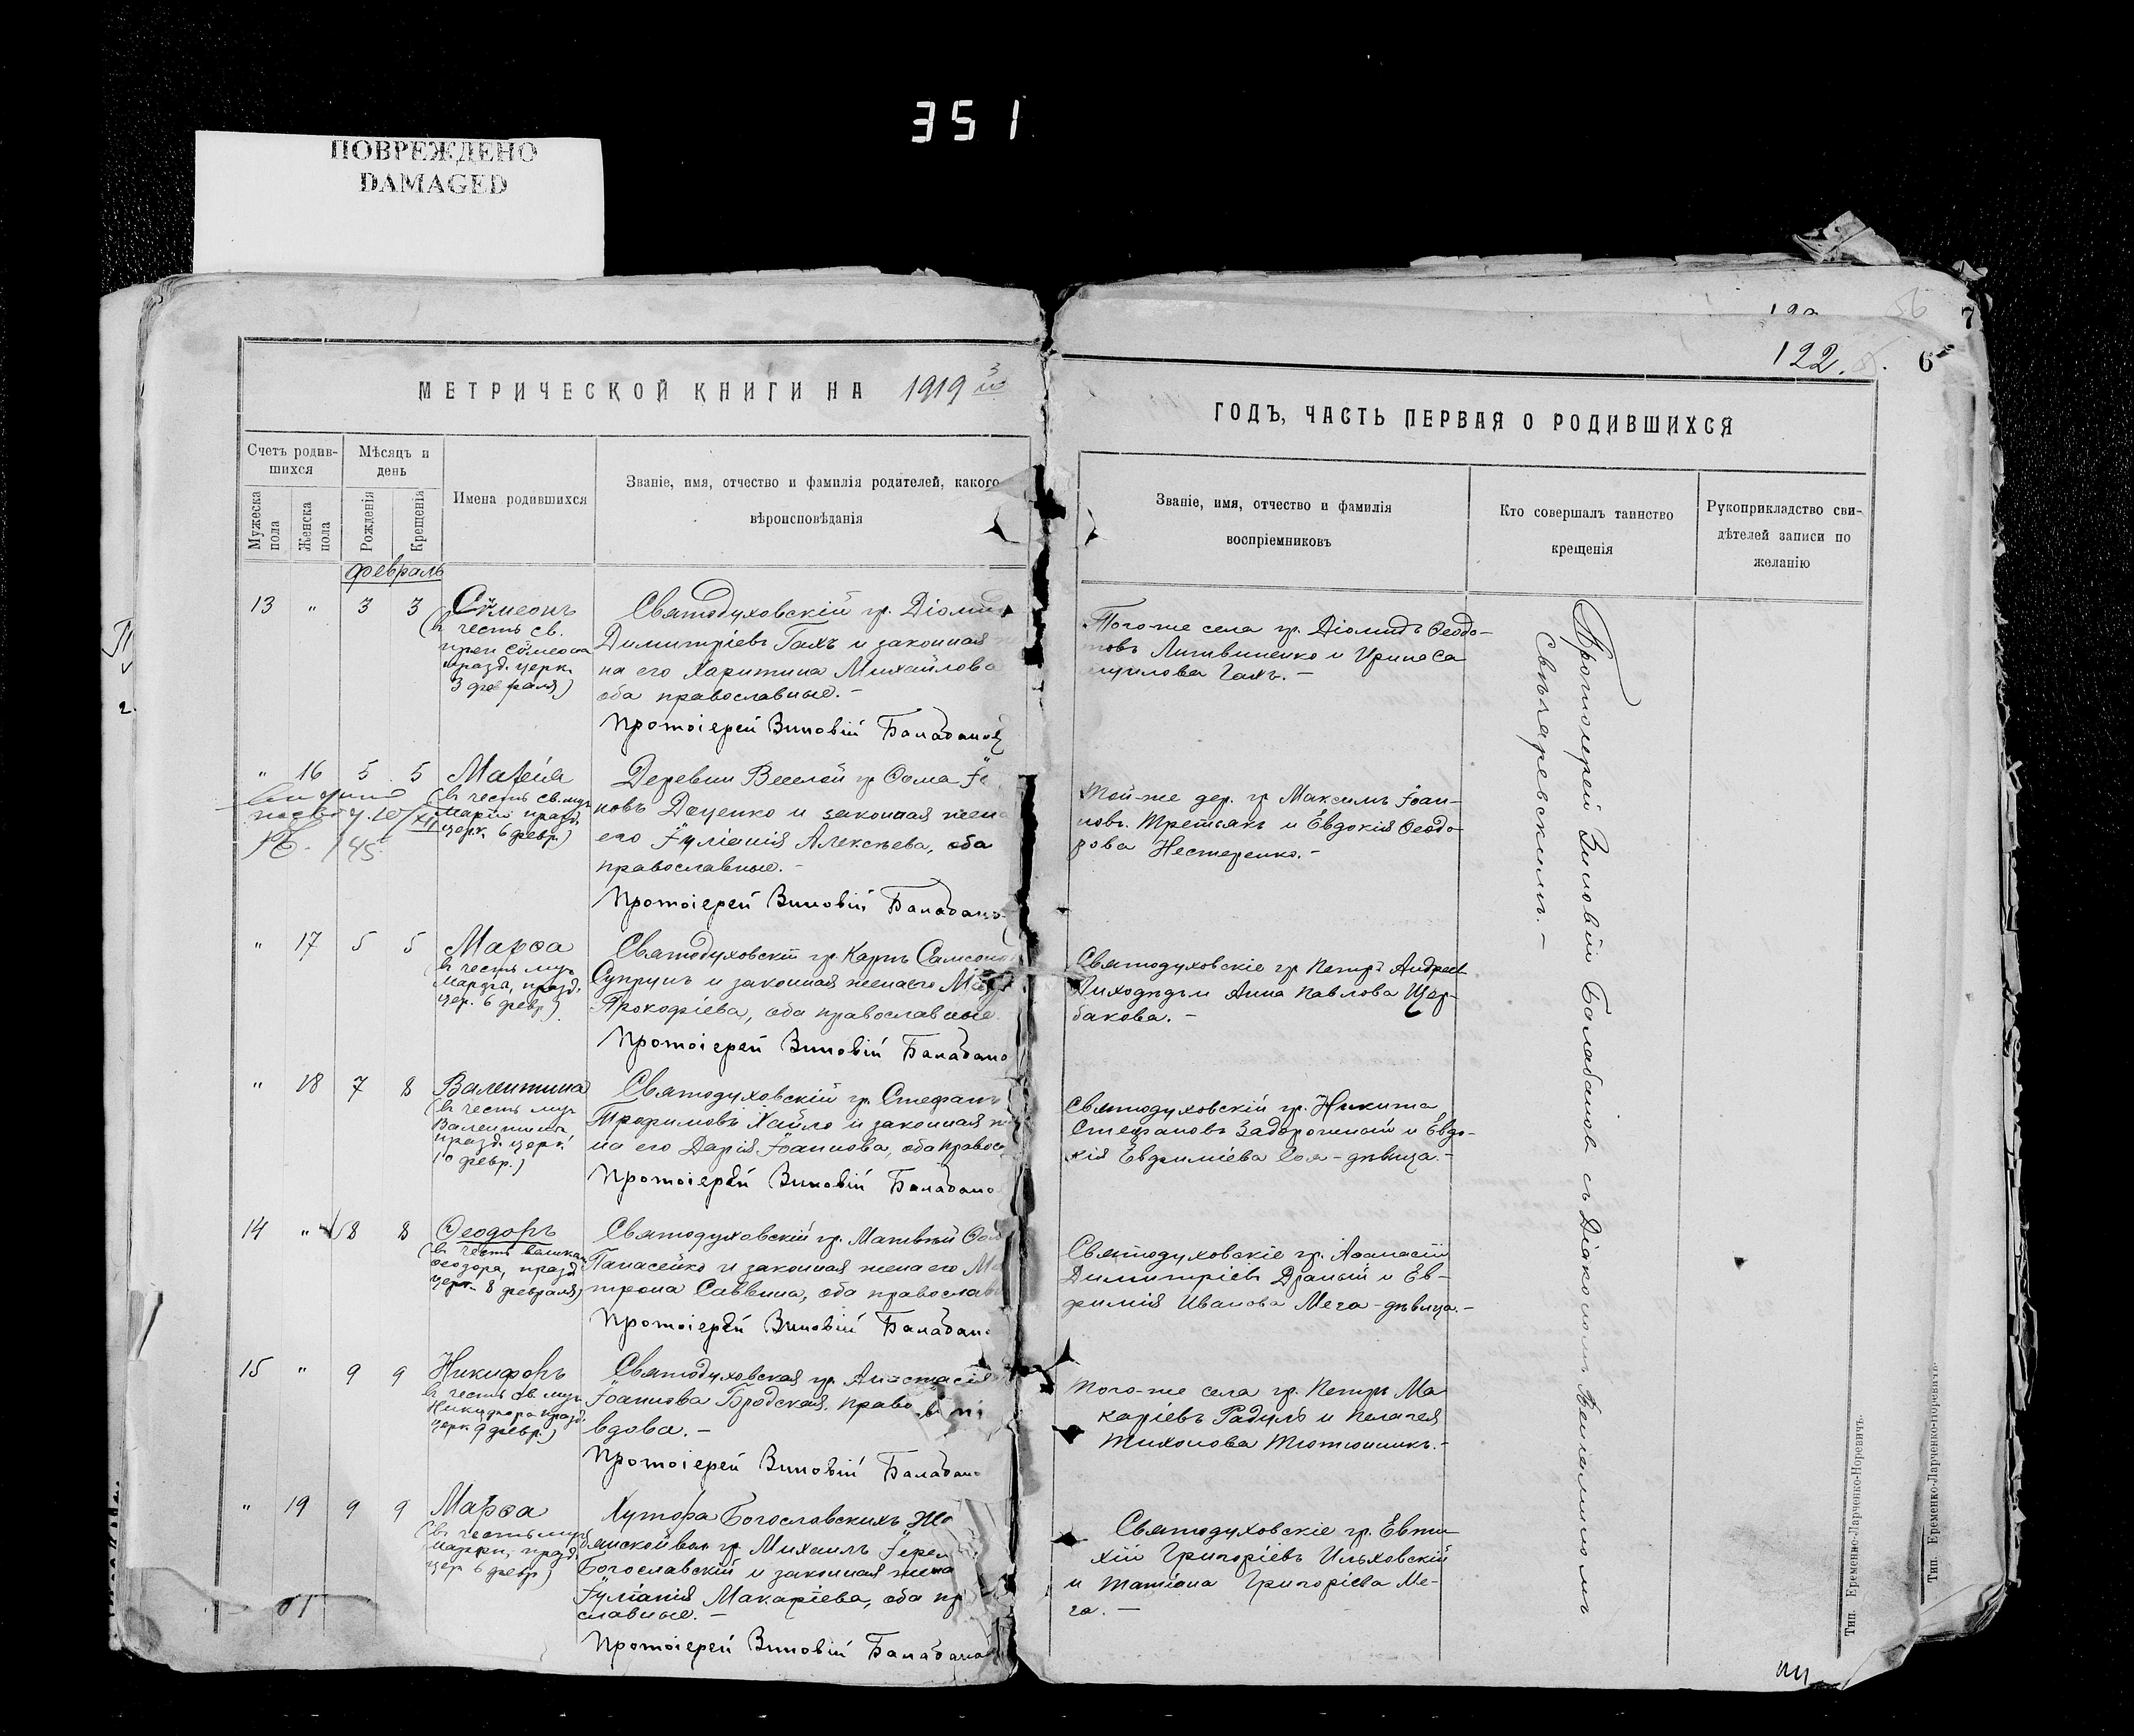 351
ПОВРЕЖДЕНО
DAMAGED
122.
6
7
МЕТРИЧЕСКОЙ КНИГИ НА 1919й
ГОДЪ, ЧАСТЬ ПЕРВАЯ О РОДИВШИХСЯ
Счетъ родив-
шихся
Мужеска
пола
Женска
пола
Мѣсяцъ и
день
Рожденія
Крещенія
Имена родившихся
Званіе, имя, отчество и фамилія родителей, какого
вѣроисповѣданія
Званіе, имя, отчество и фамилія
воспріемниковъ
Кто совершалъ таинство
крещенія
Рукоприкладство сви-
дѣтелей записи по
желанію
Февраль
13 " 3 3 Сѵмеонъ
(въ честь св.
прав. Сѵмеона
празд. церк.
3 февраля)
Святодуховскій гр. Діомид
Димитріевъ Гахъ и законная
на его Харитина Михайлова
оба православные.-
Протоіерей Зиновій Балабановъ
Того-же села гр. Діомидъ Ѳеодо-
товъ Литвиненко и Ирина Са
муилова Гахъ.-
" 16 5 5 Марія
(въ честь св. муч.
Маріи празд.
церк. 6 февр.)
Деревни Веселой гр. Ѳома Іо
новъ Доценко и законная жена
его Іуліанія Алексѣева, оба
православные.-
Протоіерей Зиновій Балабано
Той-же дер. гр. Максимъ Іоан-
новъ Третьякъ и Евдокія Ѳеодо-
рова Нестеренко.-
" 17 5 5 Марѳа
(въ честь муч.
Марѳы, празд.
цер. 6 февр.)
Святодуховскій гр. Карпъ Самсоно
Супрунъ и законная жена его Ма
Прокофіева, оба православные
Протоіерей Зиновій Балабано
Святодуховскіе гр. Петръ Андреев
Лиходѣдъ и Анна Павлова Щер-
бакова.-
" 18 7 8 Валентина
(въ честь муч.
Валентины
празд. церк.
10 февр.)
Святодуховскій гр. Стефанъ
Трофимовъ Хайло и законная же
на его Дарія Іоаннова, оба правос
Протоіерей Зиновій Балабано
Святодуховскій гр. Никита
Стефановъ Задорожный и Евдо-
кія Евфиміева Соя-дѣвица.-
14 " 8 8 Ѳеодоръ
(въ честь великом.
Ѳеодора, празд.
церк. 8 февраля)
Святодуховскій гр. Матвѣй
Панасейко и законная жена его Ма
трона Саввина, оба православ
Протоіерей Зиновій Балабано
Святодуховскіе гр. Аѳанасій
Димитріевъ Драный и Ев-
фимія Иванова Мега-дѣвица.-
15 " 9 9 Никифоръ
(въ честь св. муч.
Никифора празд.
церк. 9 февр.)
Святодуховская гр. Анастасія
Іоаннова Бродская, право
вдова.-
Протоіерей Зиновій Балабано
Того-же села гр. Петръ Ма
каріевъ Радуль и Пелагея
Тихонова Тютюнникъ.-
" 19 9 9 Марѳа
(въ честь муч.
Марѳы, празд.
церк. 6 февр.)
Хутора Богословскихъ
анской вол. гр. Михаилъ Іерем
Богославскій и законная жена
Іуліанія Макаріева, оба пр
славные.-
Протоіерей Зиновій Балабанов
Святодуховскіе гр. Евти-
хій Григоріевъ Ильховскій
и Татіана Григоріева Ме-
га.-
Протоіерей Зиновій Балабановъ съ Діакономъ Веніаминомъ
Свѣчаревскимъ.-
Тип. Еременко-Ларченко-Норевичъ.
Тип. Еременко-Ларченко-Норевичъ.